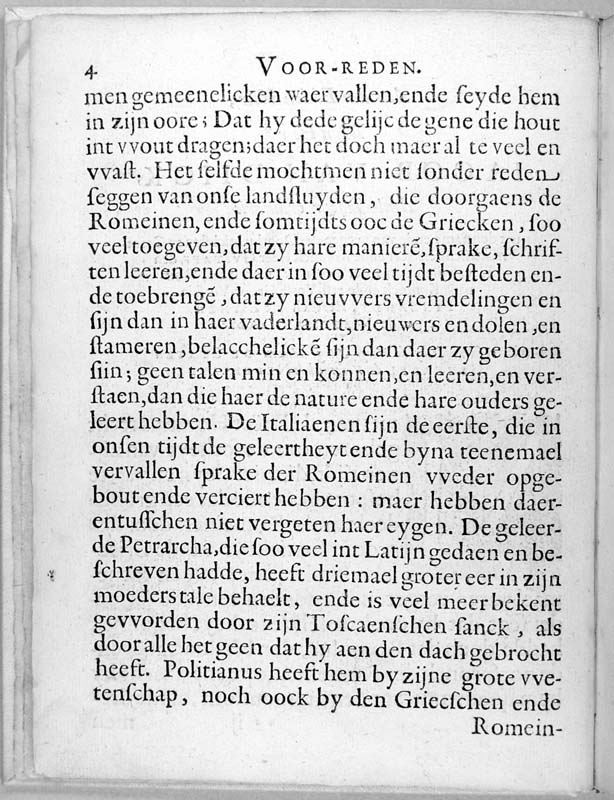 4. VOOR-REDEN.
men gemeenelicken waer vallen, ende ſeyde hem
in zijn oore; Dat hy dede gelijc de gene die hout
int vvout dragen; daer het doch maer al te veel en
vvaſt. Het ſelfde mochtmen niet ſonder reden
ſeggen van onſe landſluyden, die doorgaens de
Romeinen, ende ſomtijdts ooc de Griecken, ſoo
veel toegeven, dat zy hare manierẽ, ſprake, ſchrif-
ten leeren, ende daer in ſoo veel tijdt beſteden en-
de toebrengẽ, dat zy nieuvvers vremdelingen en
ſijn dan in haer vaderlandt, nieuwers en dolen, en
ſtameren, belacchelickẽ ſijn dan daer zy geboren
ſiin; geen talen min en konnen, en leeren, en ver-
ſtaen, dan die haer de nature ende hare ouders ge-
leert hebben. De Italiaenen ſijn de eerſte, die in
onſen tijdt de geleertheyt ende byna teenemael
vervallen ſprake der Romeinen vveder opge-
bout ende verciert hebben: maer hebben daer-
entuſſchen niet vergeten haer eygen. De geleer-
de Petrarcha, die ſoo veel int Latijn gedaen en be-
ſchreven hadde, heeft driemael groter eer in zijn
moeders tale behaelt, ende is veel meer bekent
gevvorden door zijn Toſcaenſchen ſanck, als
door alle het geen dat hy aen den dach gebrocht
heeft. Politianus heeft hem by zijne grote vve-
tenſchap, noch oock by den Griecſchen ende
Romein-